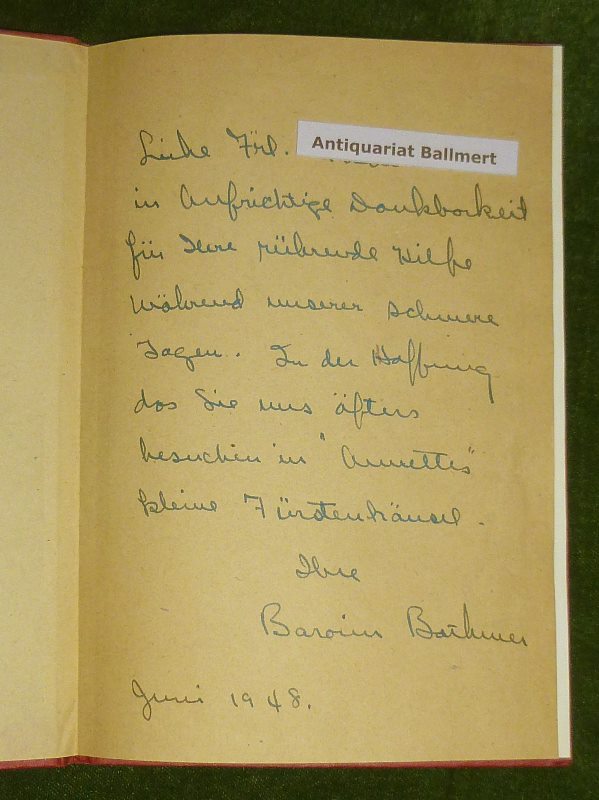 Liebe Frl.
Antiquariat Ballmert
in Aufrichtige Dankbarkeit
für Ihre rührende Hilfe
während unserer schwere
Tagen. In der Hoffnung
das Sie uns öfters
besuchen in "Annettes"
kleine Fürstenhäusel.
Ihre
Baronin Bothmer
Juni 1948.